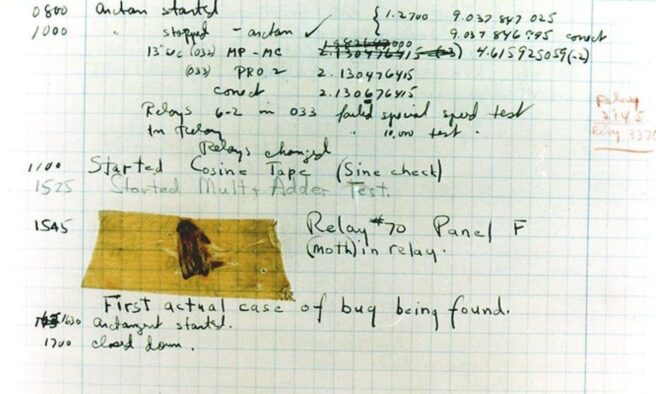 0800 arctan started { 1.2700 9.037 847 025
1000 " stopped - arctan ✓ 9.037 846 995 correct
13"uc (032) MP - MC 2.130476415 4.615925059(-2)
(033) PRO 2 2.130476415
correct 2.130676415
Relays 6-2 in 033 failed special speed test
in Relay " 10,000 test.
Relay
2145
Relay 3370
Relays changed
1100 Started Cosine Tape (Sine check)
1525 Started Mult + Adder Test.
1545 Relay #70 Panel F
(moth) in relay.
First actual case of bug being found.
1630 arctangent started.
1700 closed down.